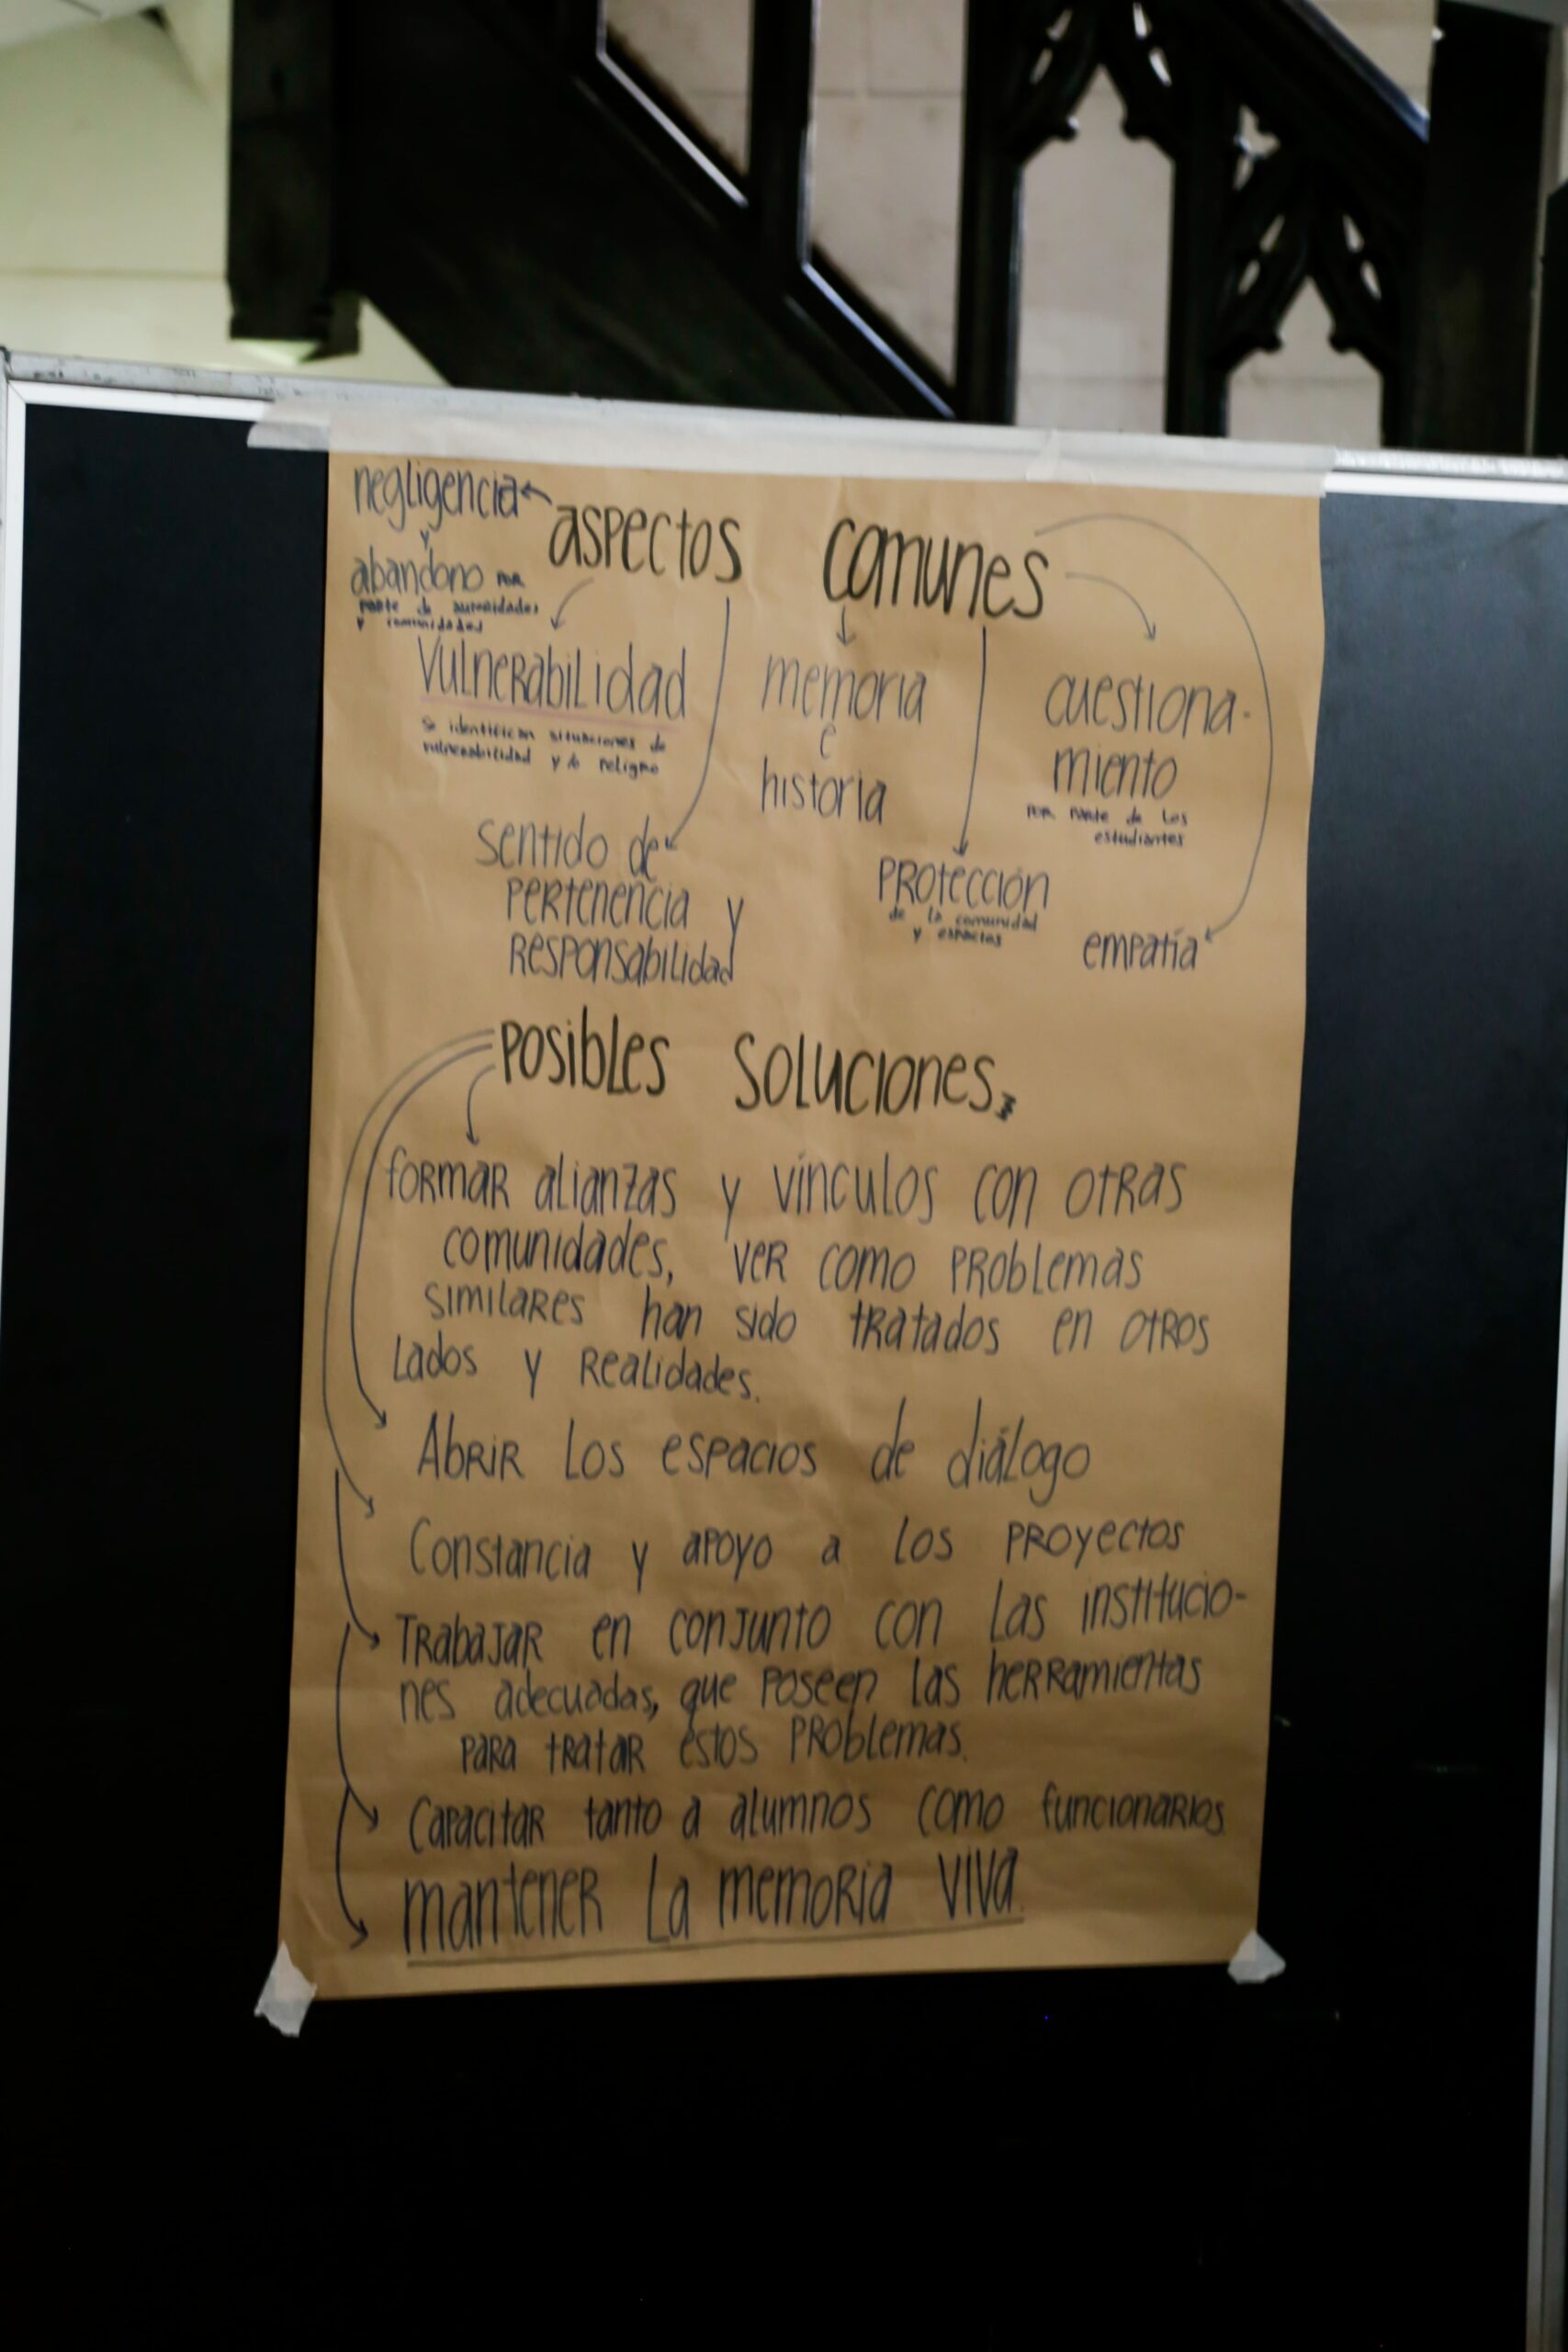 negligencia
y
abandono por
parte de autoridades
y comunidades
aspectos comunes
Vulnerabilidad
se identifican situaciones de
vulnerabilidad y/o peligro
memoria
e
historia
cuestiona-
miento
por parte de los
estudiantes
sentido de
pertenencia y
responsabilidad
protección
de la comunidad
y espacios
empatía
posibles soluciones
formar alianzas y vínculos con otras
comunidades, ver como problemas
similares han sido tratados en otros
lados y realidades.
Abrir los espacios de diálogo
Constancia y apoyo a los proyectos
Trabajar en conjunto con las institucio-
nes adecuadas, que poseen las herramientas
para tratar estos problemas.
Capacitar tanto a alumnos como funcionarios
mantener la memoria viva.